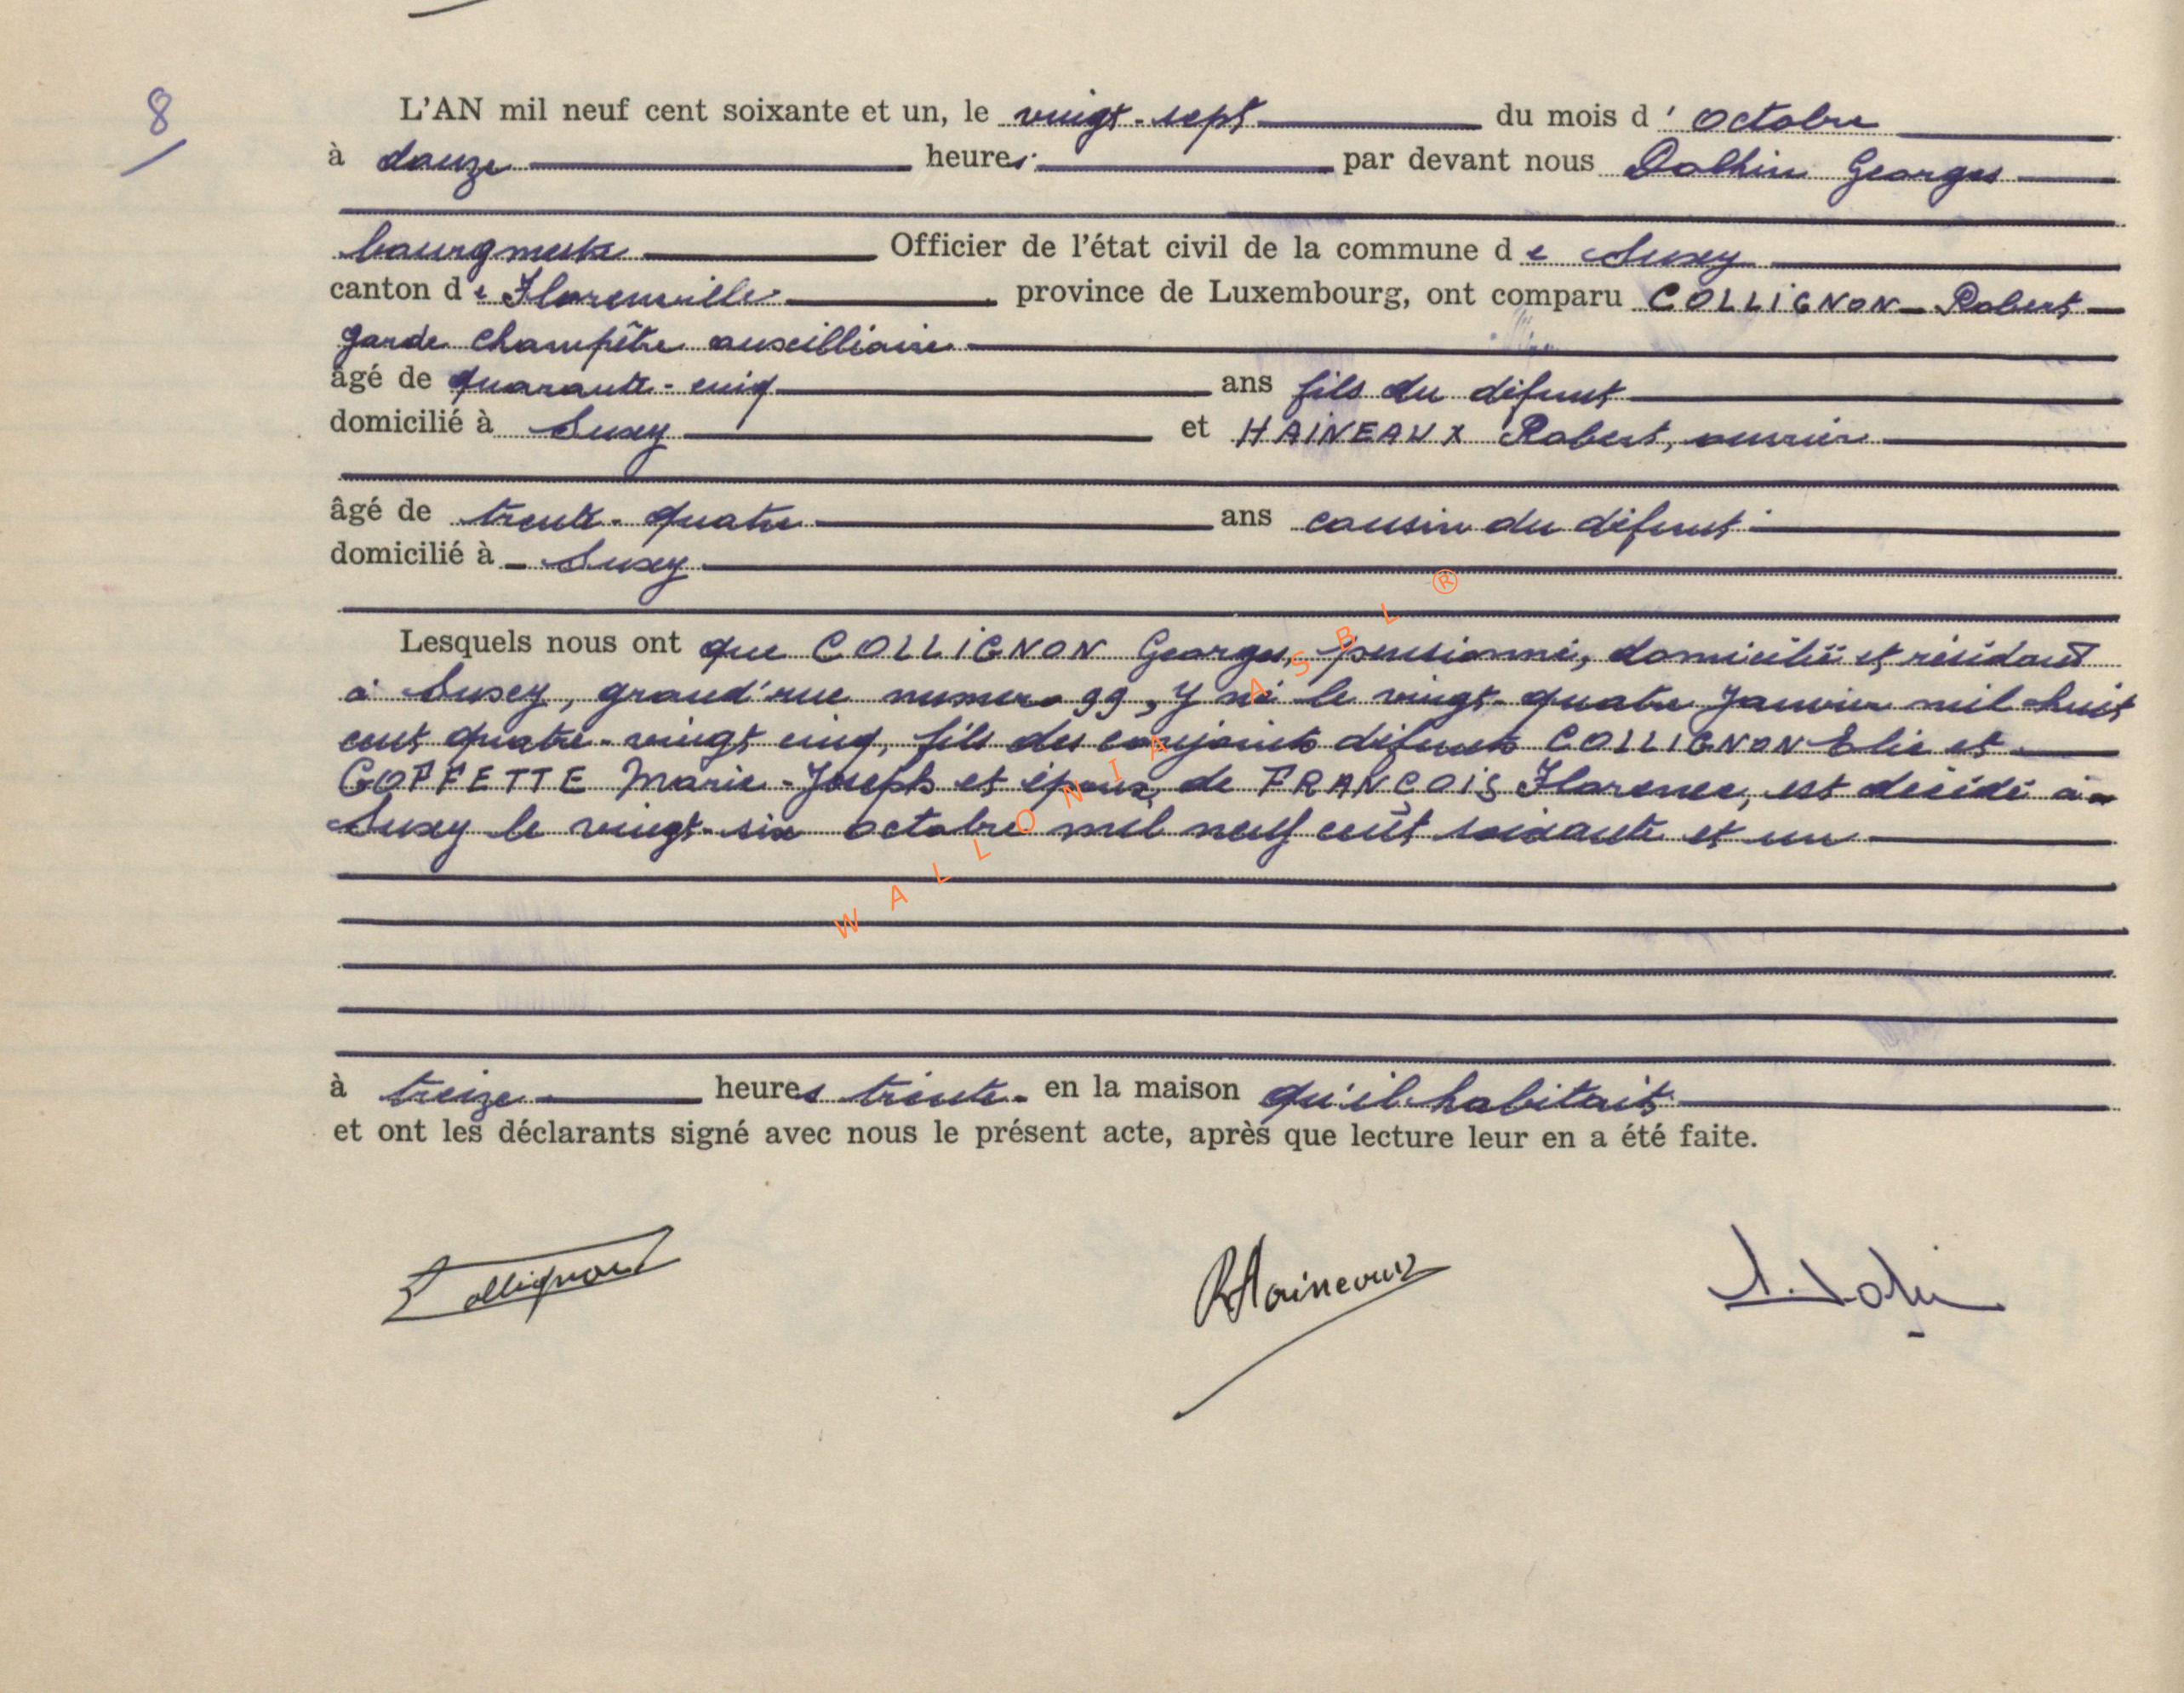 8
L'AN mil neuf cent soixante et un, le vingt-sept du mois d'octobre
à douze heures par devant nous Dolhin Georges
bourgmestre Officier de l'état civil de la commune de Suxy
canton de Florenville province de Luxembourg, ont comparu COLLIGNON Robert
garde champêtre auxilliaire
âgé de quarante-cinq ans fils du défunt
domicilié à Suxy et HAINEAUX Robert, ouvrier
âgé de trente-quatre ans cousin du défunt
domicilié à Suxy
Lesquels nous ont que COLLIGNON Georges, pensionné, domicilié et résidant
à Suxy, grand'rue numero 99, y né le vingt-quatre Janvier mil huit
cent quatre-vingt cinq, fils des conjoints défunts COLLIGNON Elie et
GOFFETTE Marie-Joseph et époux de FRANÇOIS Florence, est décédé à
Suxy le vingt-six octobre mil neuf cent soixante et un
à treize heures trente en la maison qu'il habitait
et ont les déclarants signé avec nous le présent acte, après que lecture leur en a été faite.
Collignon RHaineaux
WALLONIA ASBL ®